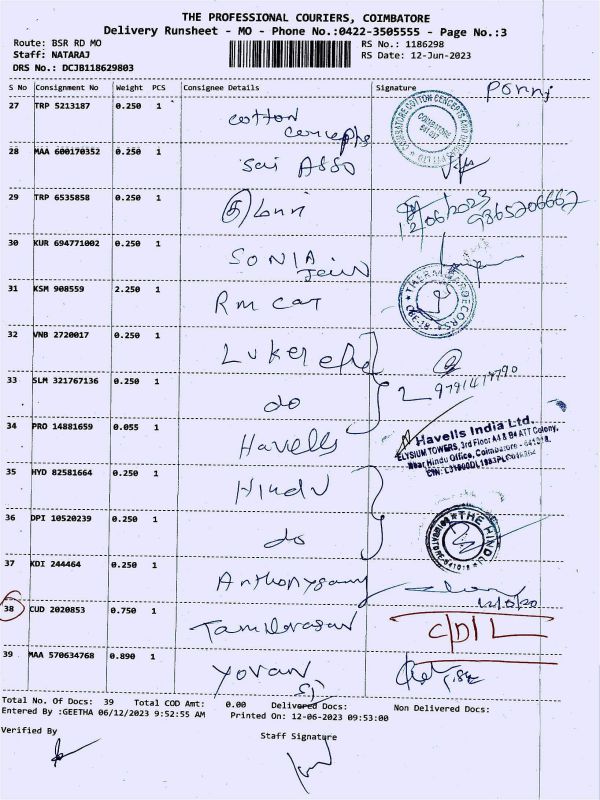 THE PROFESSIONAL COURIERS, COIMBATORE
Delivery Runsheet - MO - Phone No.:0422-3505555 - Page No.:3
Route: BSR RD MO
Staff: NATARAJ
DRS No.: DCJB118629803
RS No.: 1186298
RS Date: 12-Jun-2023
S No Consignment No Weight PCS Consignee Details Signature
Ponni
27 TRP 5213187 0.250 1 Cotton
Concepts
COIMBATORE COTTON CONCEPTS
28 MAA 600170352 0.250 1 Sai ASSO
29 TRP 6535858 0.250 1
12/06/2023
30 KUR 694771002 0.250 1 SONIA
Jain
31 KSM 908559 2.250 1 Rm car
32 VNB 2720017 0.250 1
33 SLM 321767136 0.250 1 do 2
34 PRO 14881659 0.055 1 Havells
Havells India Ltd.
ELYSIUM TOWERS, 3rd Floor A4 & B4 ATT Colony,
Near Hindu Office, Coimbatore - 641018.
35 HYD 82581664 0.250 1 Hindu
36 DPI 10520239 0.250 1 do
THE HINDU
37 KDI 244464 0.250 1 Anthonysamy
38 CUD 2020853 0.750 1 Tamilarasan
39 MAA 570634768 0.890 1
Total No. Of Docs: 39 Total COD Amt: 0.00 Delivered Docs: Non Delivered Docs:
Entered By :GEETHA 06/12/2023 9:52:55 AM Printed On: 12-06-2023 09:53:00
Verified By
Staff Signature